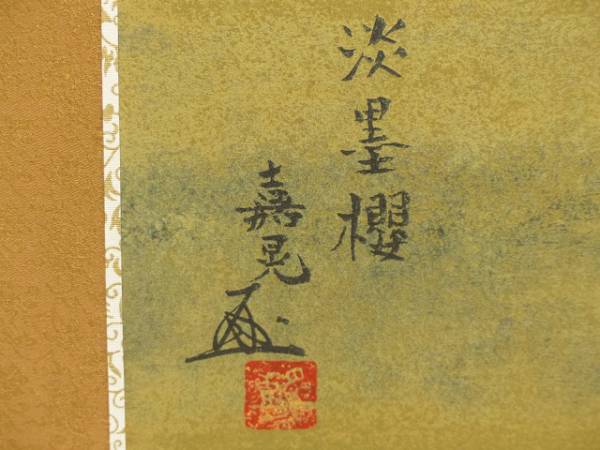 淡墨櫻
嘉晃画